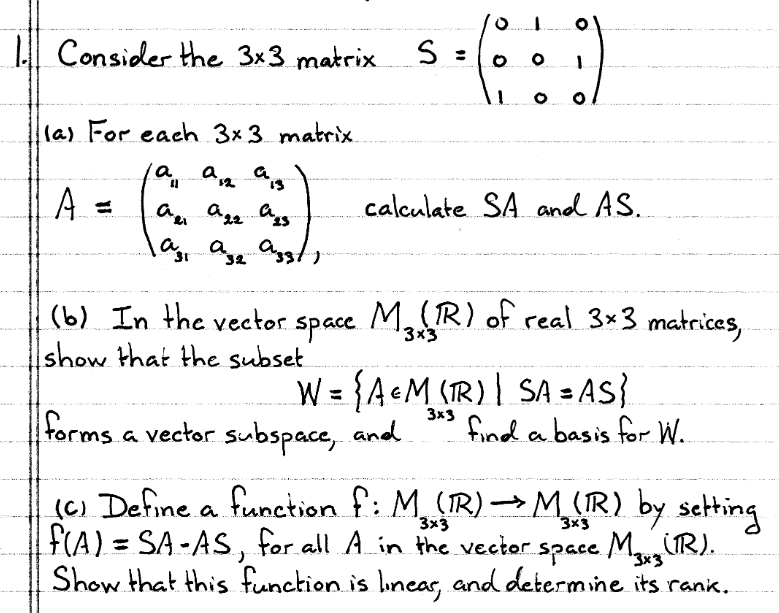 1. Consider the 3×3 matrix S = (0 1 0
0 0 1
1 0 0)
(a) For each 3×3 matrix
A = (a₁₁ a₁₂ a₁₃
a₂₁ a₂₂ a₂₃
a₃₁ a₃₂ a₃₃), calculate SA and AS.
(b) In the vector space M₃ₓ₃(ℝ) of real 3×3 matrices,
show that the subset
W = {A ∈ M₃ₓ₃(ℝ) | SA = AS}
forms a vector subspace, and find a basis for W.
(c) Define a function f: M₃ₓ₃(ℝ) → M₃ₓ₃(ℝ) by setting
f(A) = SA - AS, for all A in the vector space M₃ₓ₃(ℝ).
Show that this function is linear, and determine its rank.